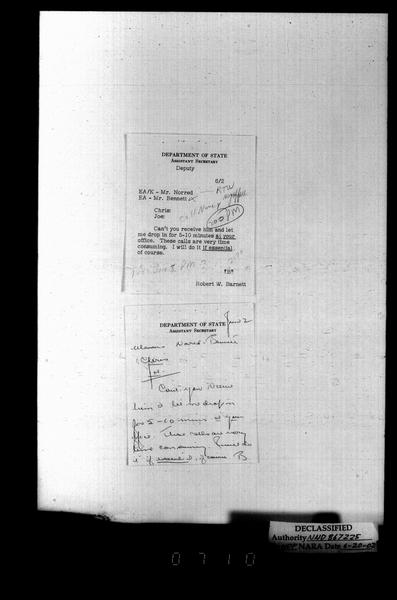 DEPARTMENT OF STATE
ASSISTANT SECRETARY
Deputy
6/2
EA/K - Mr. Norred
EA - Mr. Bennett
Chris:
Joe:
300 PM
Can't you receive him and let
me drop in for 5-10 minutes at your
office. These calls are very time
consuming. I will do it if essential
of course.
Robert W. Barnett
DEPARTMENT OF STATE
ASSISTANT SECRETARY
June 2
Norred - Bennett
Chris
Joe
Can't you receive
him & let me drop in
for 5-10 mins at your
office. These calls are very
time consuming. I will do
it if essential, of course B
DECLASSIFIED
Authority NND 867225
NARA Date 6-20-02
0710